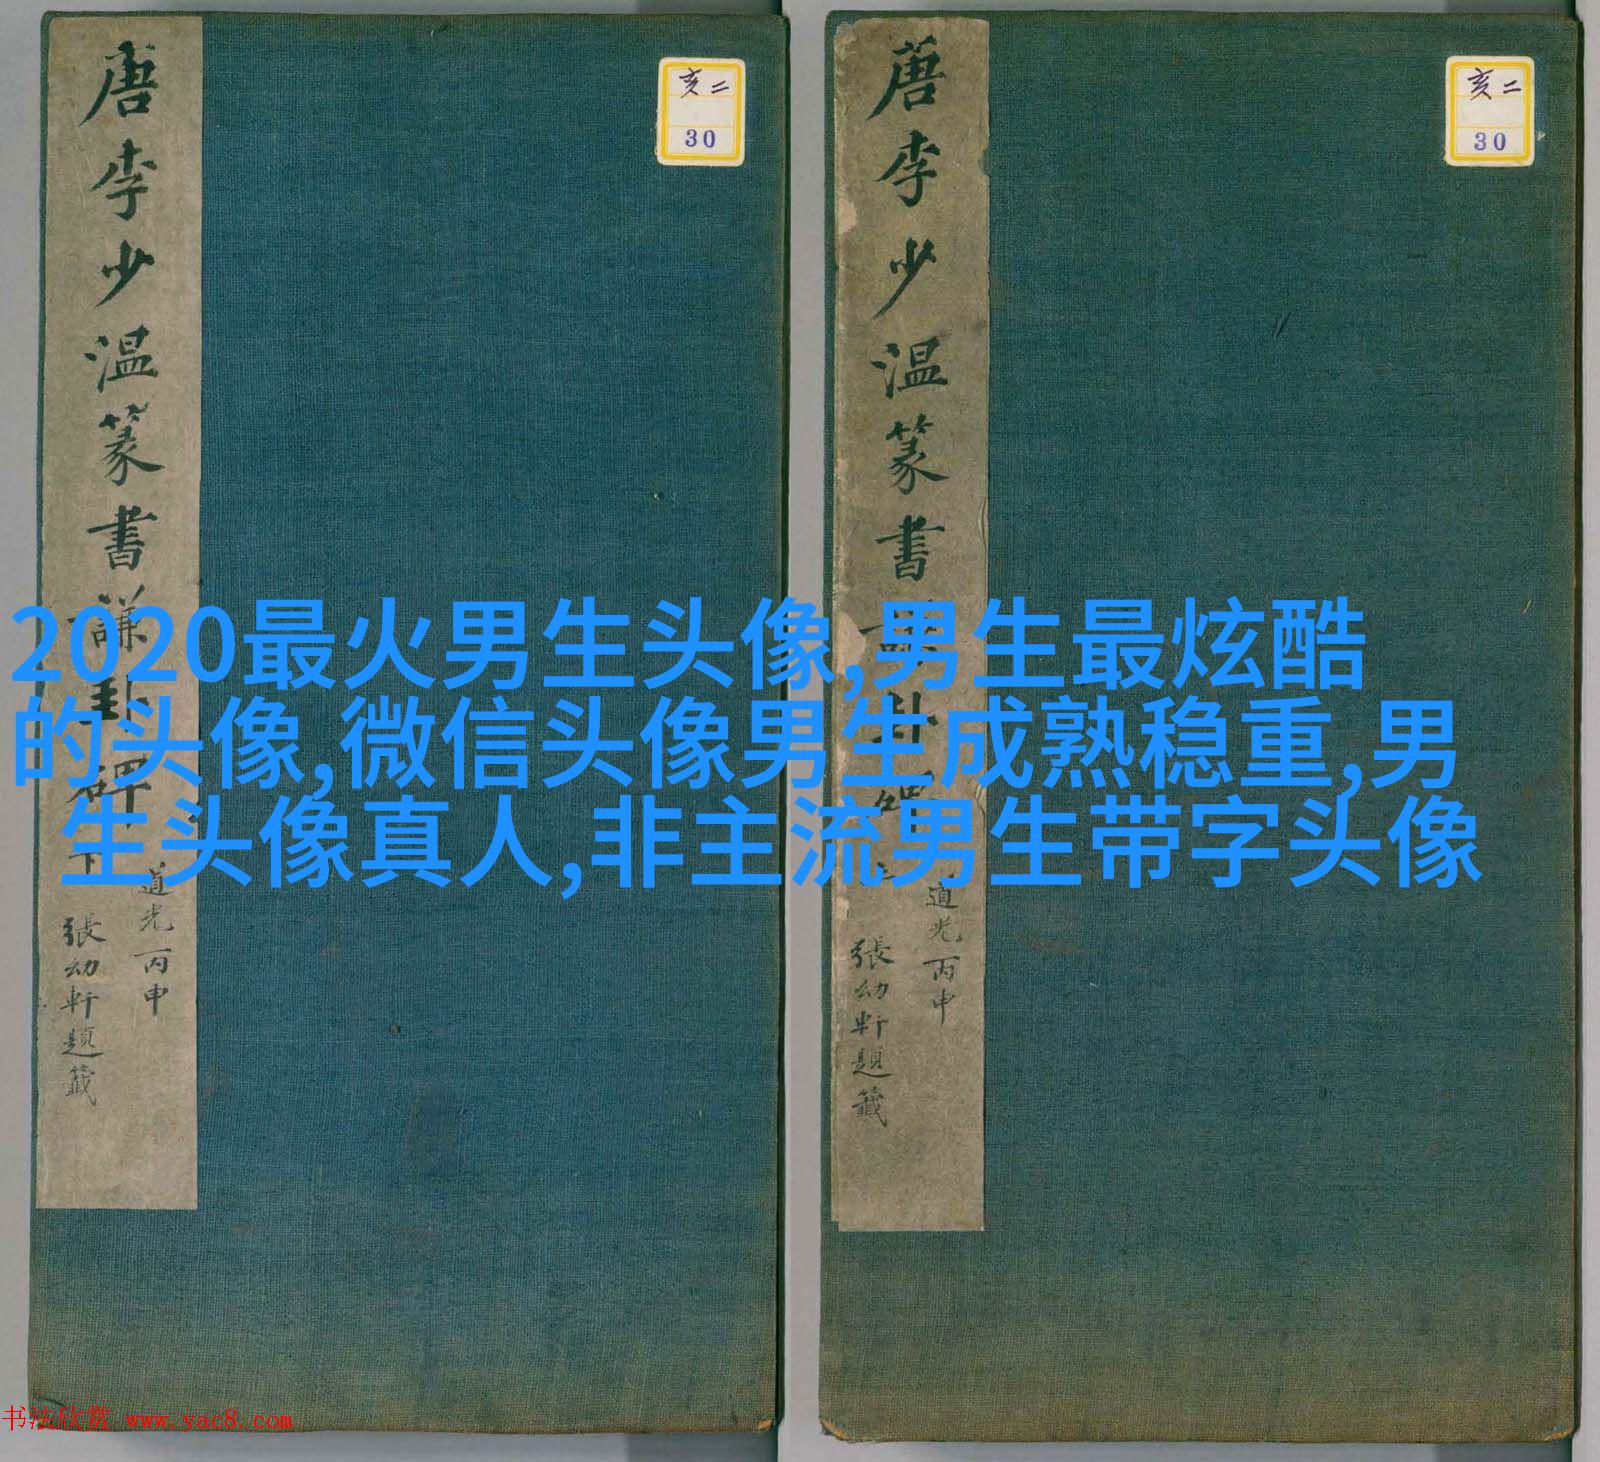 唐李少温篆書謙卦碑下
道光丙申
張幼軒題籤
亥二
30
唐李少温篆書謙卦碑
道光丙申
張幼軒題籤
亥二
30
2020最火男生头像,男生最炫酷
的头像,微信头像男生成熟稳重,男
生头像真人,非主流男生带字头像
书法欣赏 www.yac8.com